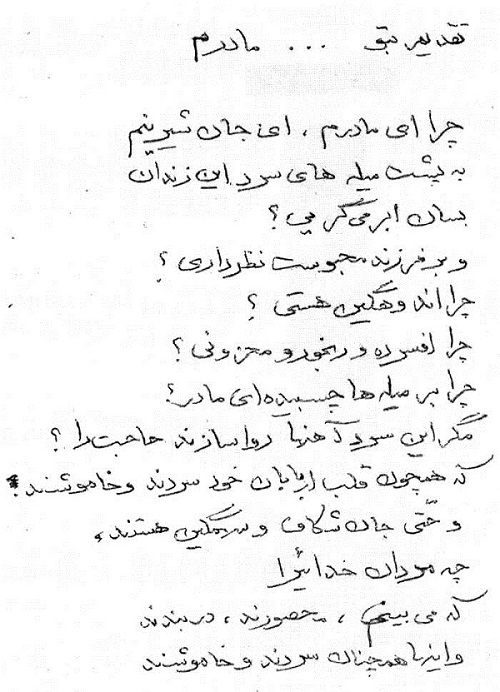 تقدیم بتو ... مادرم
چرا ای مادرم ، ای جان شیرینم
به پشت میله های سرد این زندان
بسان ابر می گریی ؟
و بر فرزند محبوست نظر داری ؟
چرا اندوهگین هستی ؟
چرا افسرده و رنجور و محزونی ؟
چرا بر میله ها چسبیده ای مادر ؟
مگر این سرد آهنها روا سازند حاجت را ؟
که همچون قلب اربابان خود سردند و خاموشند !
و حتی جان شکاف و سهمگین هستند ،
چه مردان خدائی را
که می بینم ، محصورند ، دربندند
و اینها همچنان سردند و خاموشند